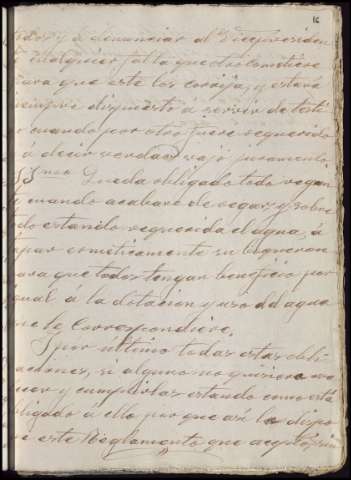 16
y á denunciar al Vicepresiden
cualquier falta que otro cometiere
para que este los corrija, y estará
siempre dispuesto á servir de testi
cuando por otro fuere requerido
á decir verdad vajo juramento
13.mo Queda obligado todo regan
cuando acabare de regar, y sobre
do estando requerida el agua, á
tapar cométicamente su boqueron
para que todos tengan beneficio por
igual á la dotacion y uso del agua
que le Correspondiere.
Y por ultimo todas estas obli
gaciones, si alguno no quisiere
y cumplirlas estando como está
obligado á ello por que asi lo dispo
ne este Reglamento que